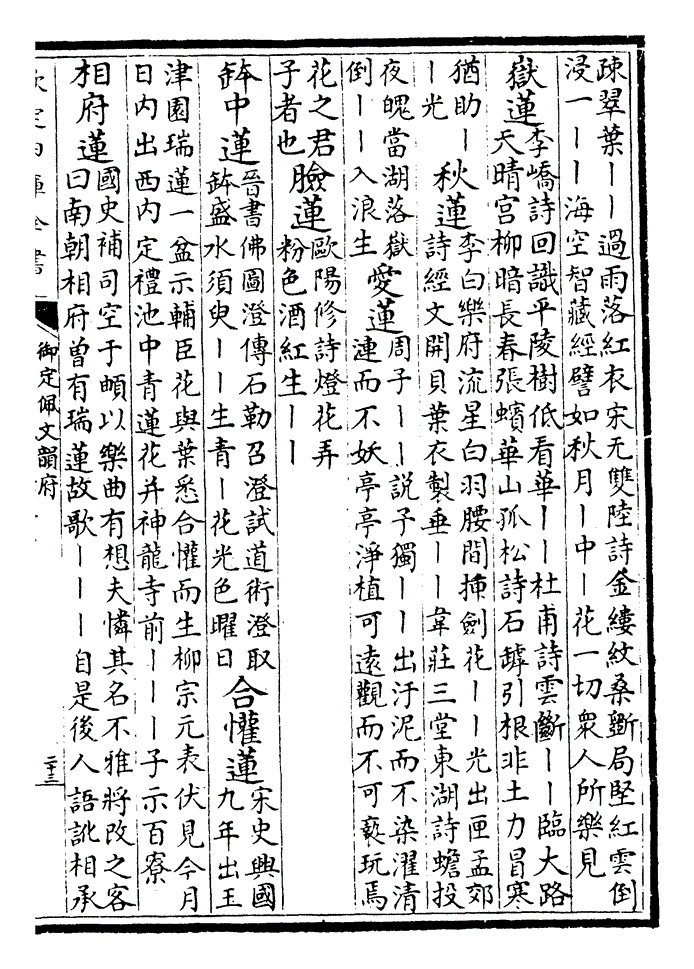 疎翠葉丨丨過雨落紅衣宋无雙陸詩金縷紋桑斲局堅紅雲倒
浸一丨丨海空智藏經譬如秋月丨中丨花一切衆人所樂見
嶽蓮
李嶠詩回識平陵樹低看華丨丨杜甫詩雲斷丨丨臨大路
天晴宮柳暗長春張蠙華山孤松詩石罅引根非土力冒寒
猶助丨
丨光
秋蓮
李白樂府流星白羽腰間插劍花丨丨光出匣孟郊
詩經文開貝葉衣製垂丨丨韋莊三堂東湖詩蟾投
夜魄當湖落嶽
倒丨丨入浪生
愛蓮
周子丨丨說子獨丨丨出汙泥而不染濯清
漣而不妖亭亭淨植可遠觀而不可褻玩焉
花之君
子者也
臉蓮
歐陽修詩燈花弄
粉色酒紅生丨丨
鉢中蓮
晉書佛圖澄傳石勒召澄試道術澄取
鉢盛水須臾丨丨生青丨花光色曜日
合懽蓮
宋史興國
九年出玉
津園瑞蓮一盆示輔臣花與葉悉合懽而生柳宗元表伏見今月
日内出西内定禮池中青蓮花并神龍寺前丨丨丨子示百寮
相府蓮
國史補司空于頔以樂曲有想夫憐其名不雅將改之客
曰南朝相府曽有瑞蓮故歌丨丨丨自是後人語訛相承
欽定四庫全書
御定佩文韻府
二十三